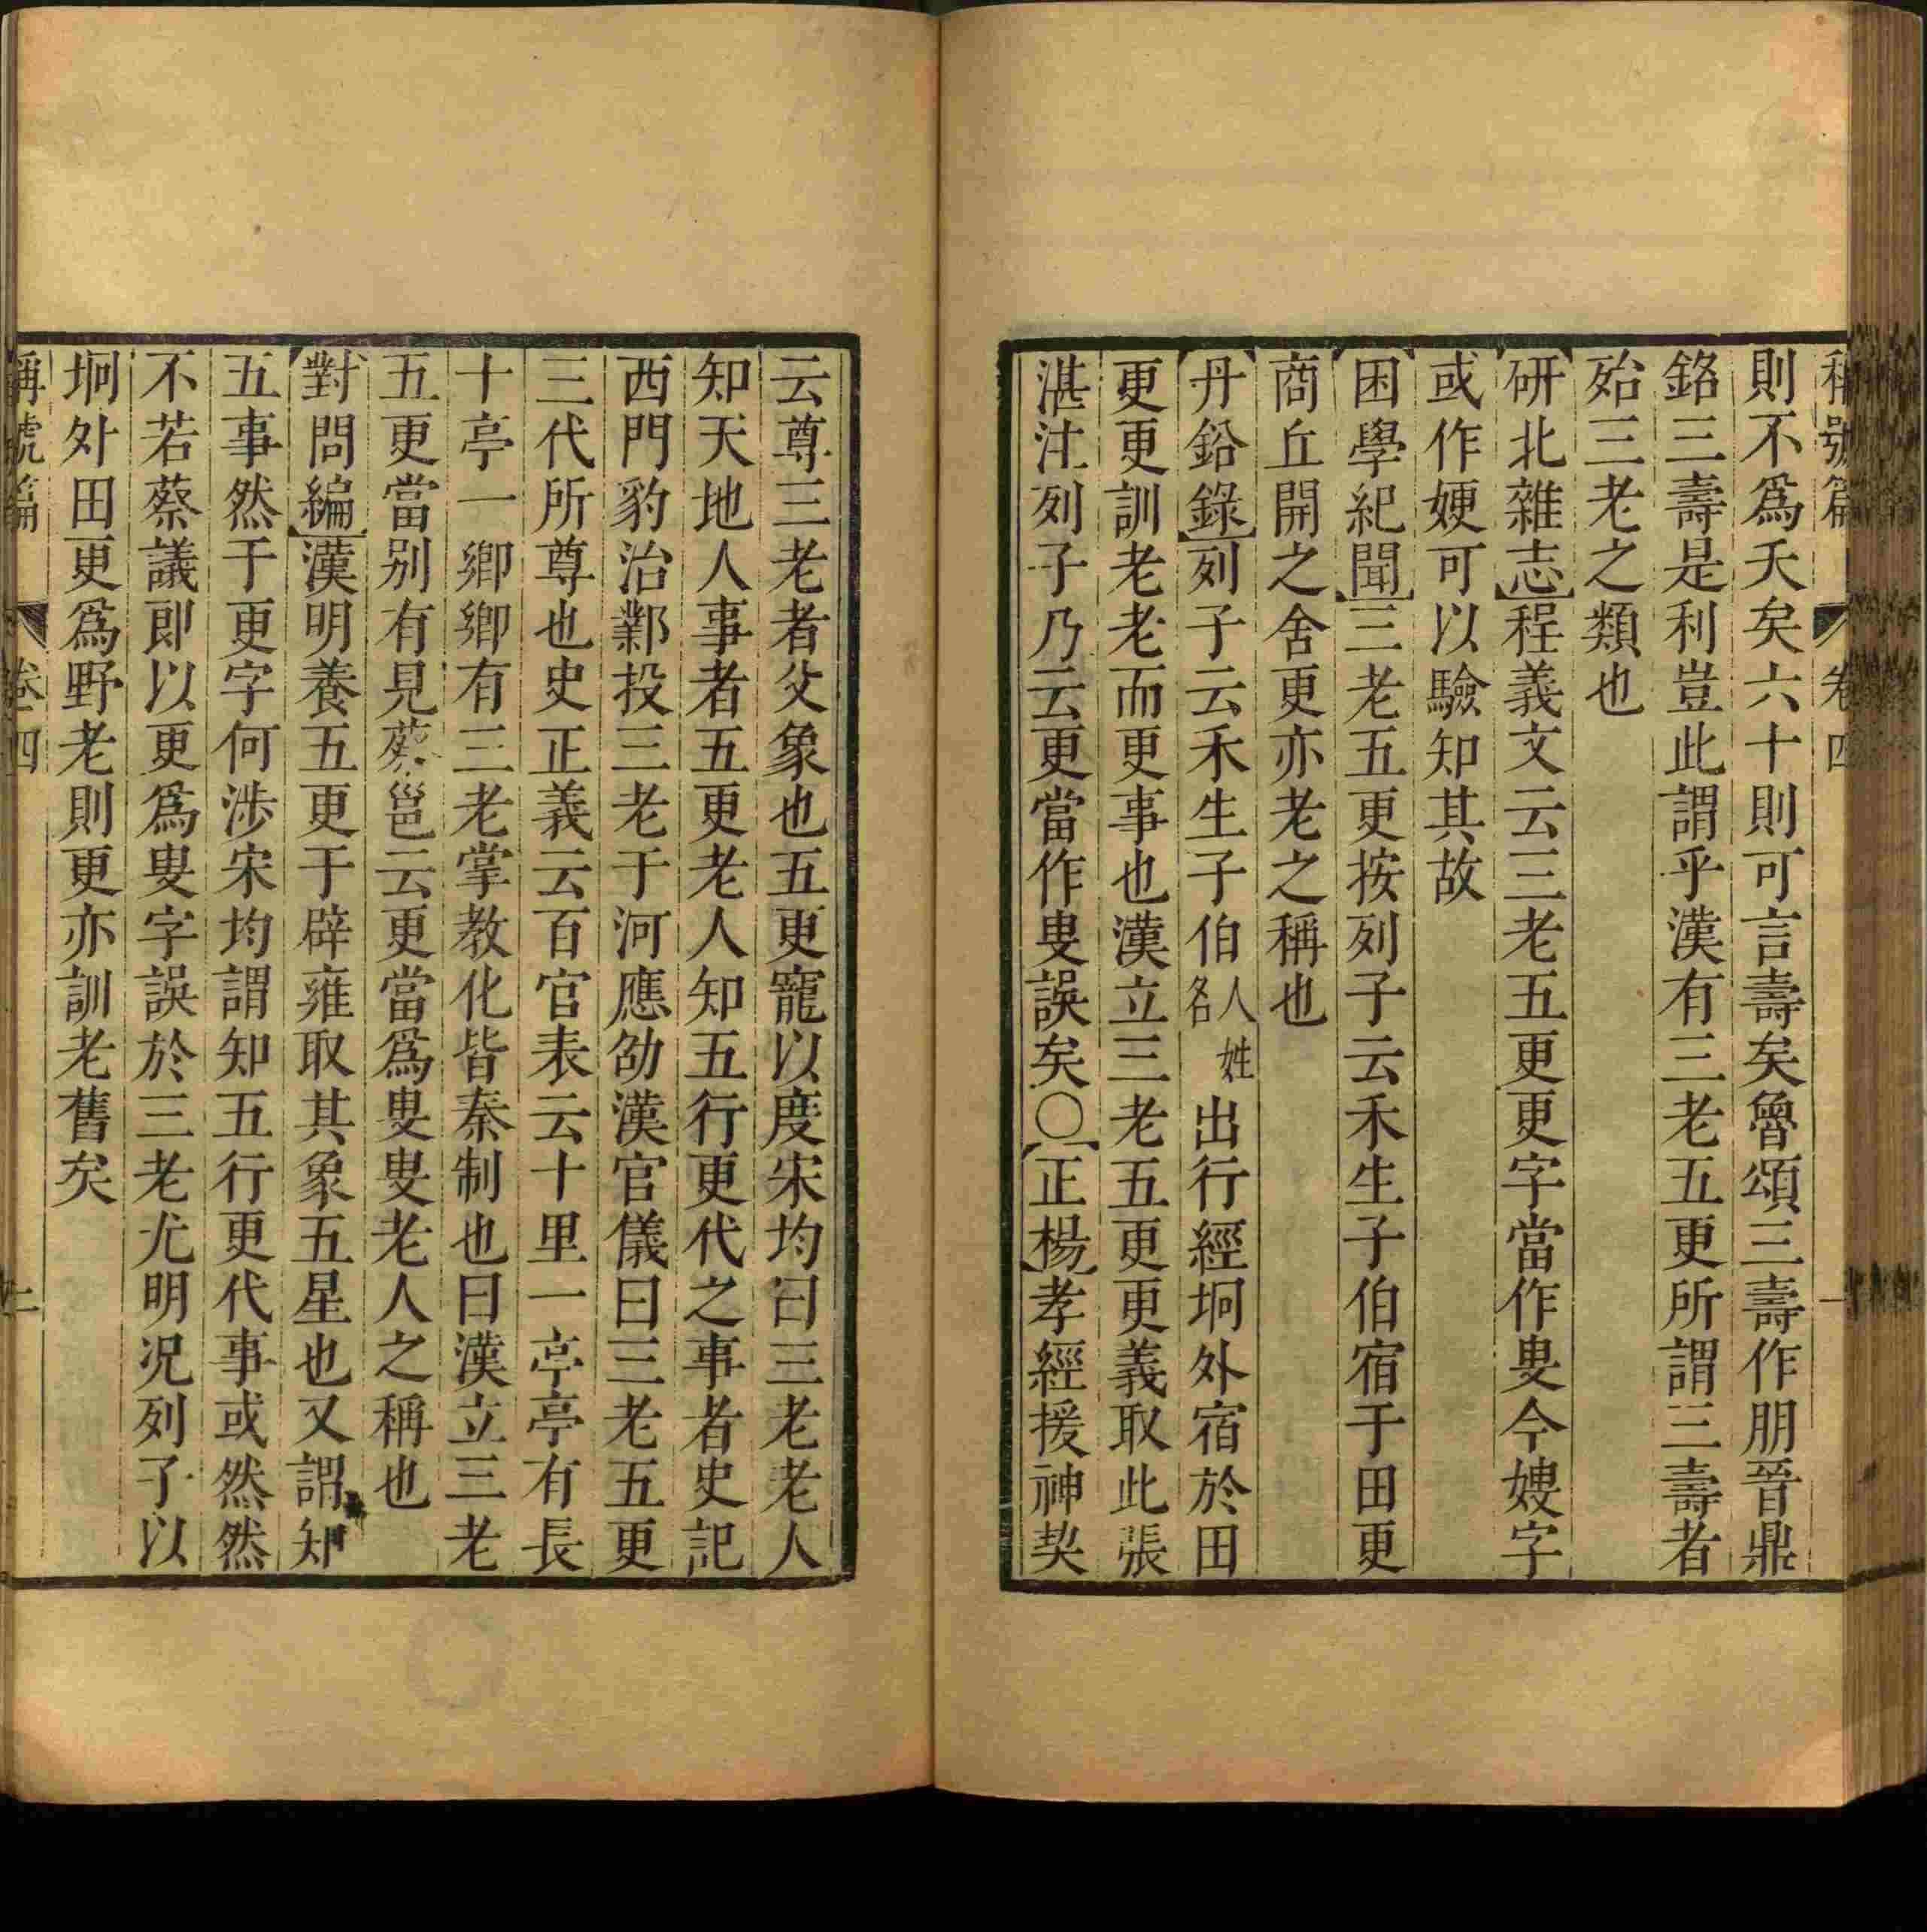 稱號篇 卷四 一
則不爲夭矣六十則可言壽矣魯頌三壽作朋晉鼎
銘三壽是利豈此謂乎漢有三老五更所謂三壽者
殆三老之類也
研北雜志程義文云三老五更更字當作叟今嫂字
或作㛐可以驗知其故
困學紀聞三老五更按列子云禾生子伯宿于田更
商丘開之舍更亦老之稱也
丹鉛錄列子云禾生子伯人姓名出行經坰外宿於田
更更訓老老而更事也漢立三老五更更義取此張
湛注列子乃云更當作叟誤矣〇正楊孝經援神契
云尊三老者父象也五更寵以度宋均曰三老老人
知天地人事者五更老人知五行更代之事者史記
西門豹治鄴投三老于河應劭漢官儀曰三老五更
三代所尊也史正義云百官表云十里一亭亭有長
十亭一鄉鄉有三老掌教化皆秦制也曰漢立三老
五更當别有見蔡邕云更當爲叟叟老人之稱也
對問編漢明養五更于辟雍取其象五星也又謂知
五事然于更字何涉宋均謂知五行更代事或然然
不若蔡議即以更爲叟字誤於三老尤明況列子以
坰外田更爲野老則更亦訓老舊矣
稱號篇 卷四 二